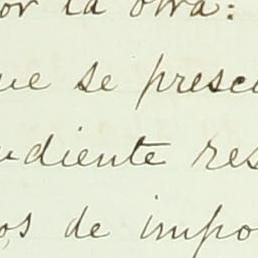 or la otra:
ue se presc
udiente res
os de impo